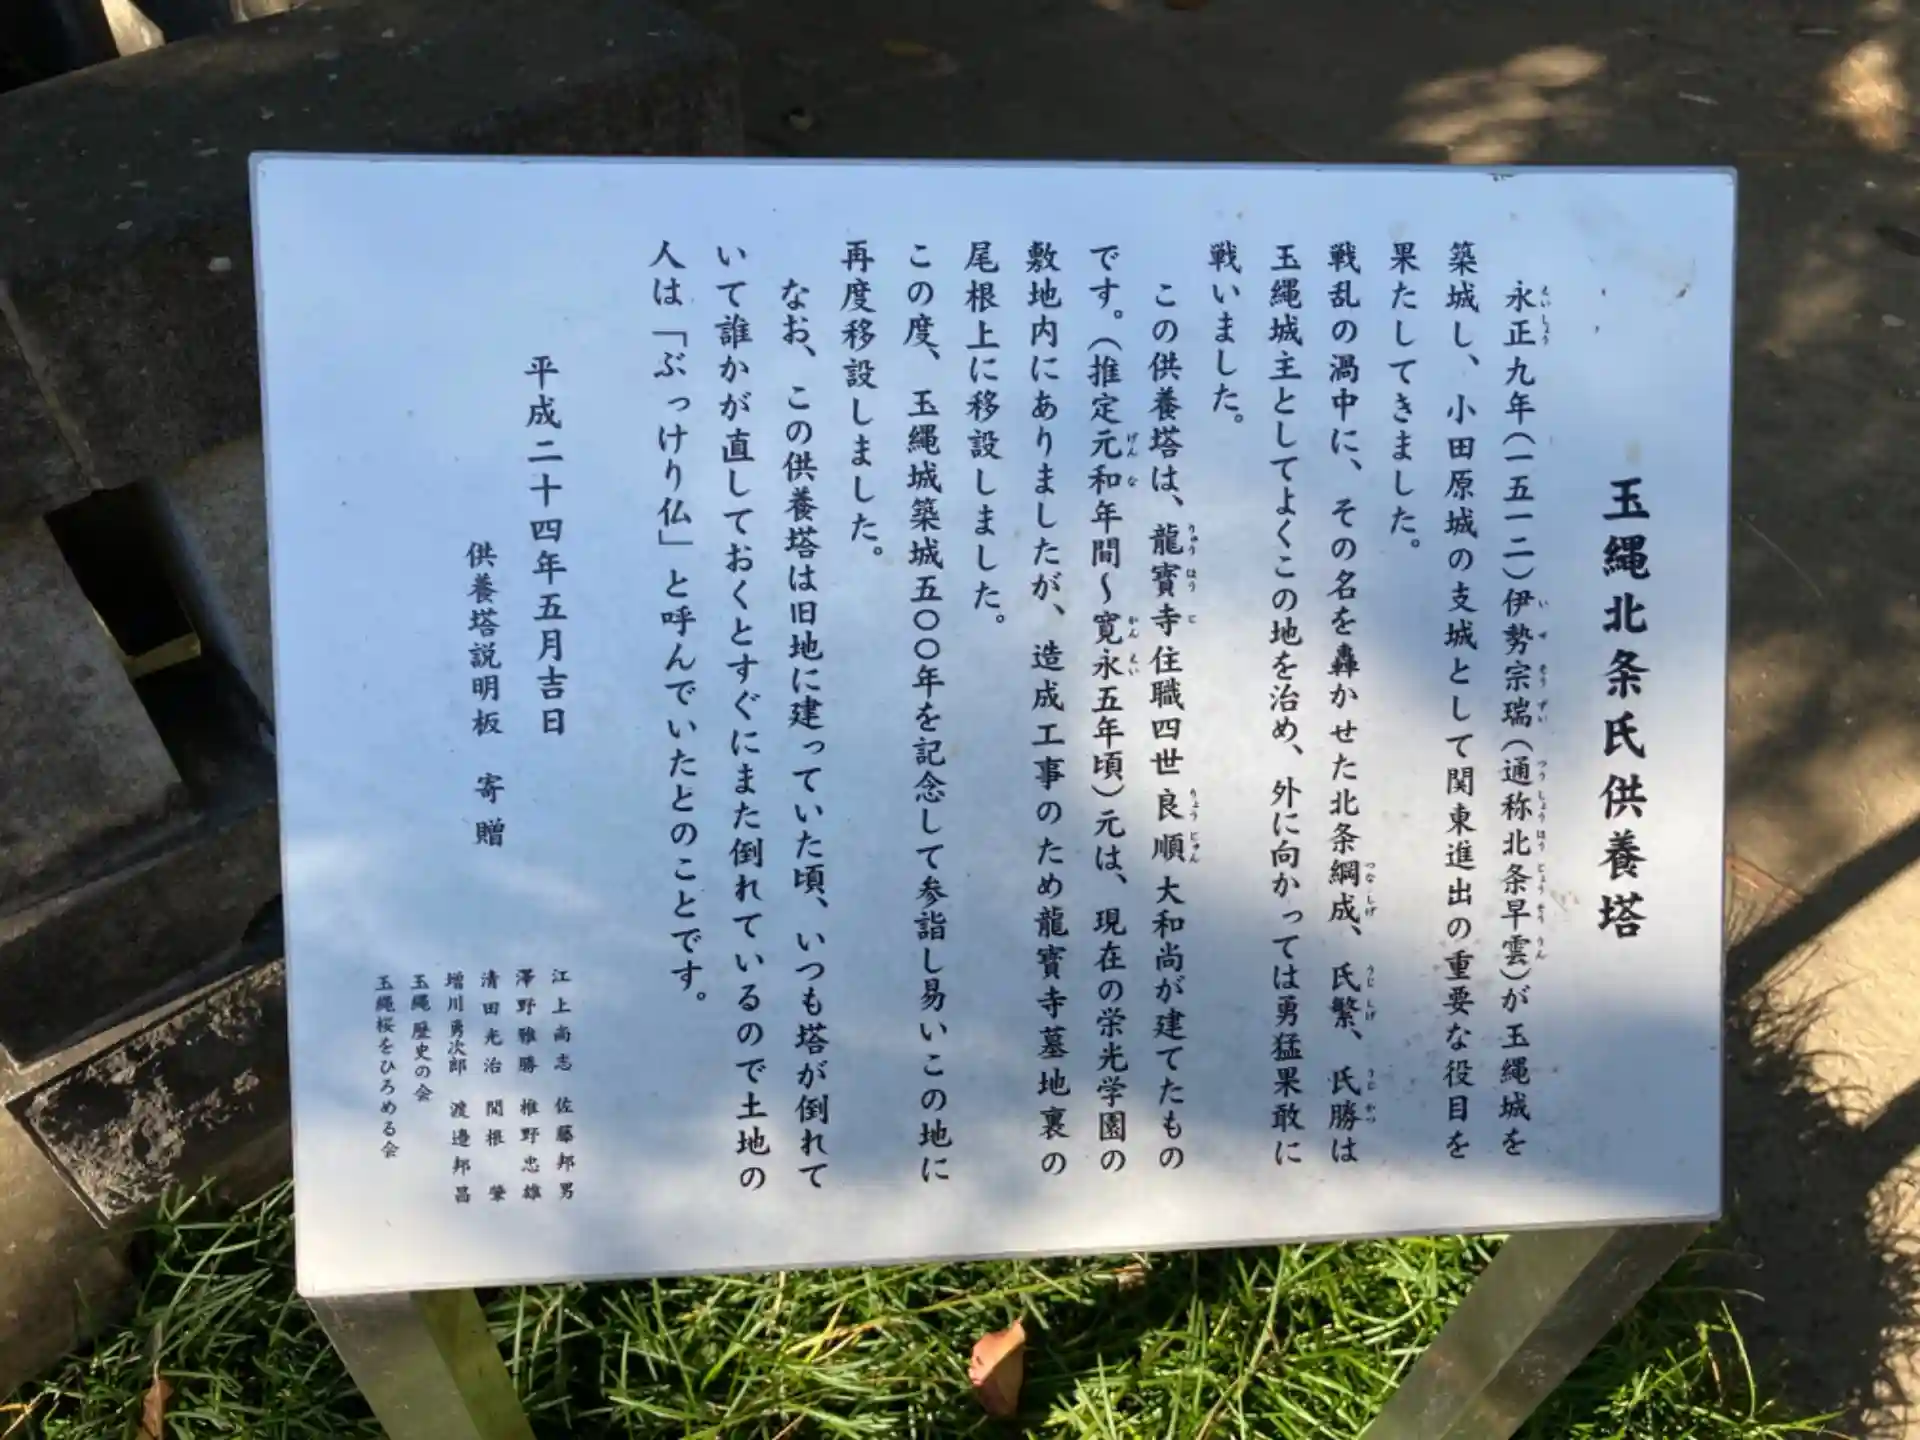 玉縄北条氏供養塔
永正九年(一五一二)伊勢宗瑞(通称北条早雲)が玉縄城を
築城し、小田原城の支城として関東進出の重要な役目を
果たしてきました。
戦乱の渦中に、その名を轟かせた北条綱成、氏繁、氏勝は
玉縄城主としてよくこの地を治め、外に向かっては勇猛果敢に
戦いました。
この供養塔は、龍寳寺住職四世良順大和尚が建てたもの
です。(推定元和年間～寛永五年頃)元は、現在の栄光学園の
敷地内にありましたが、造成工事のため龍寳寺墓地裏の
尾根上に移設しました。
この度、玉縄城築城五〇〇年を記念して参詣し易いこの地に
再度移設しました。
なお、この供養塔は旧地に建っていた頃、いつも塔が倒れて
いて誰かが直しておくとすぐにまた倒れているので土地の
人は「ぶっけり仏」と呼んでいたとのことです。
平成二十四年五月吉日
供養塔説明板 寄贈
江上尚志 佐藤邦男
澤野雅勝 椎野忠雄
清田光治 関根 肇
増川勇次郎 渡邉邦昌
玉縄歴史の会
玉縄桜をひろめる会